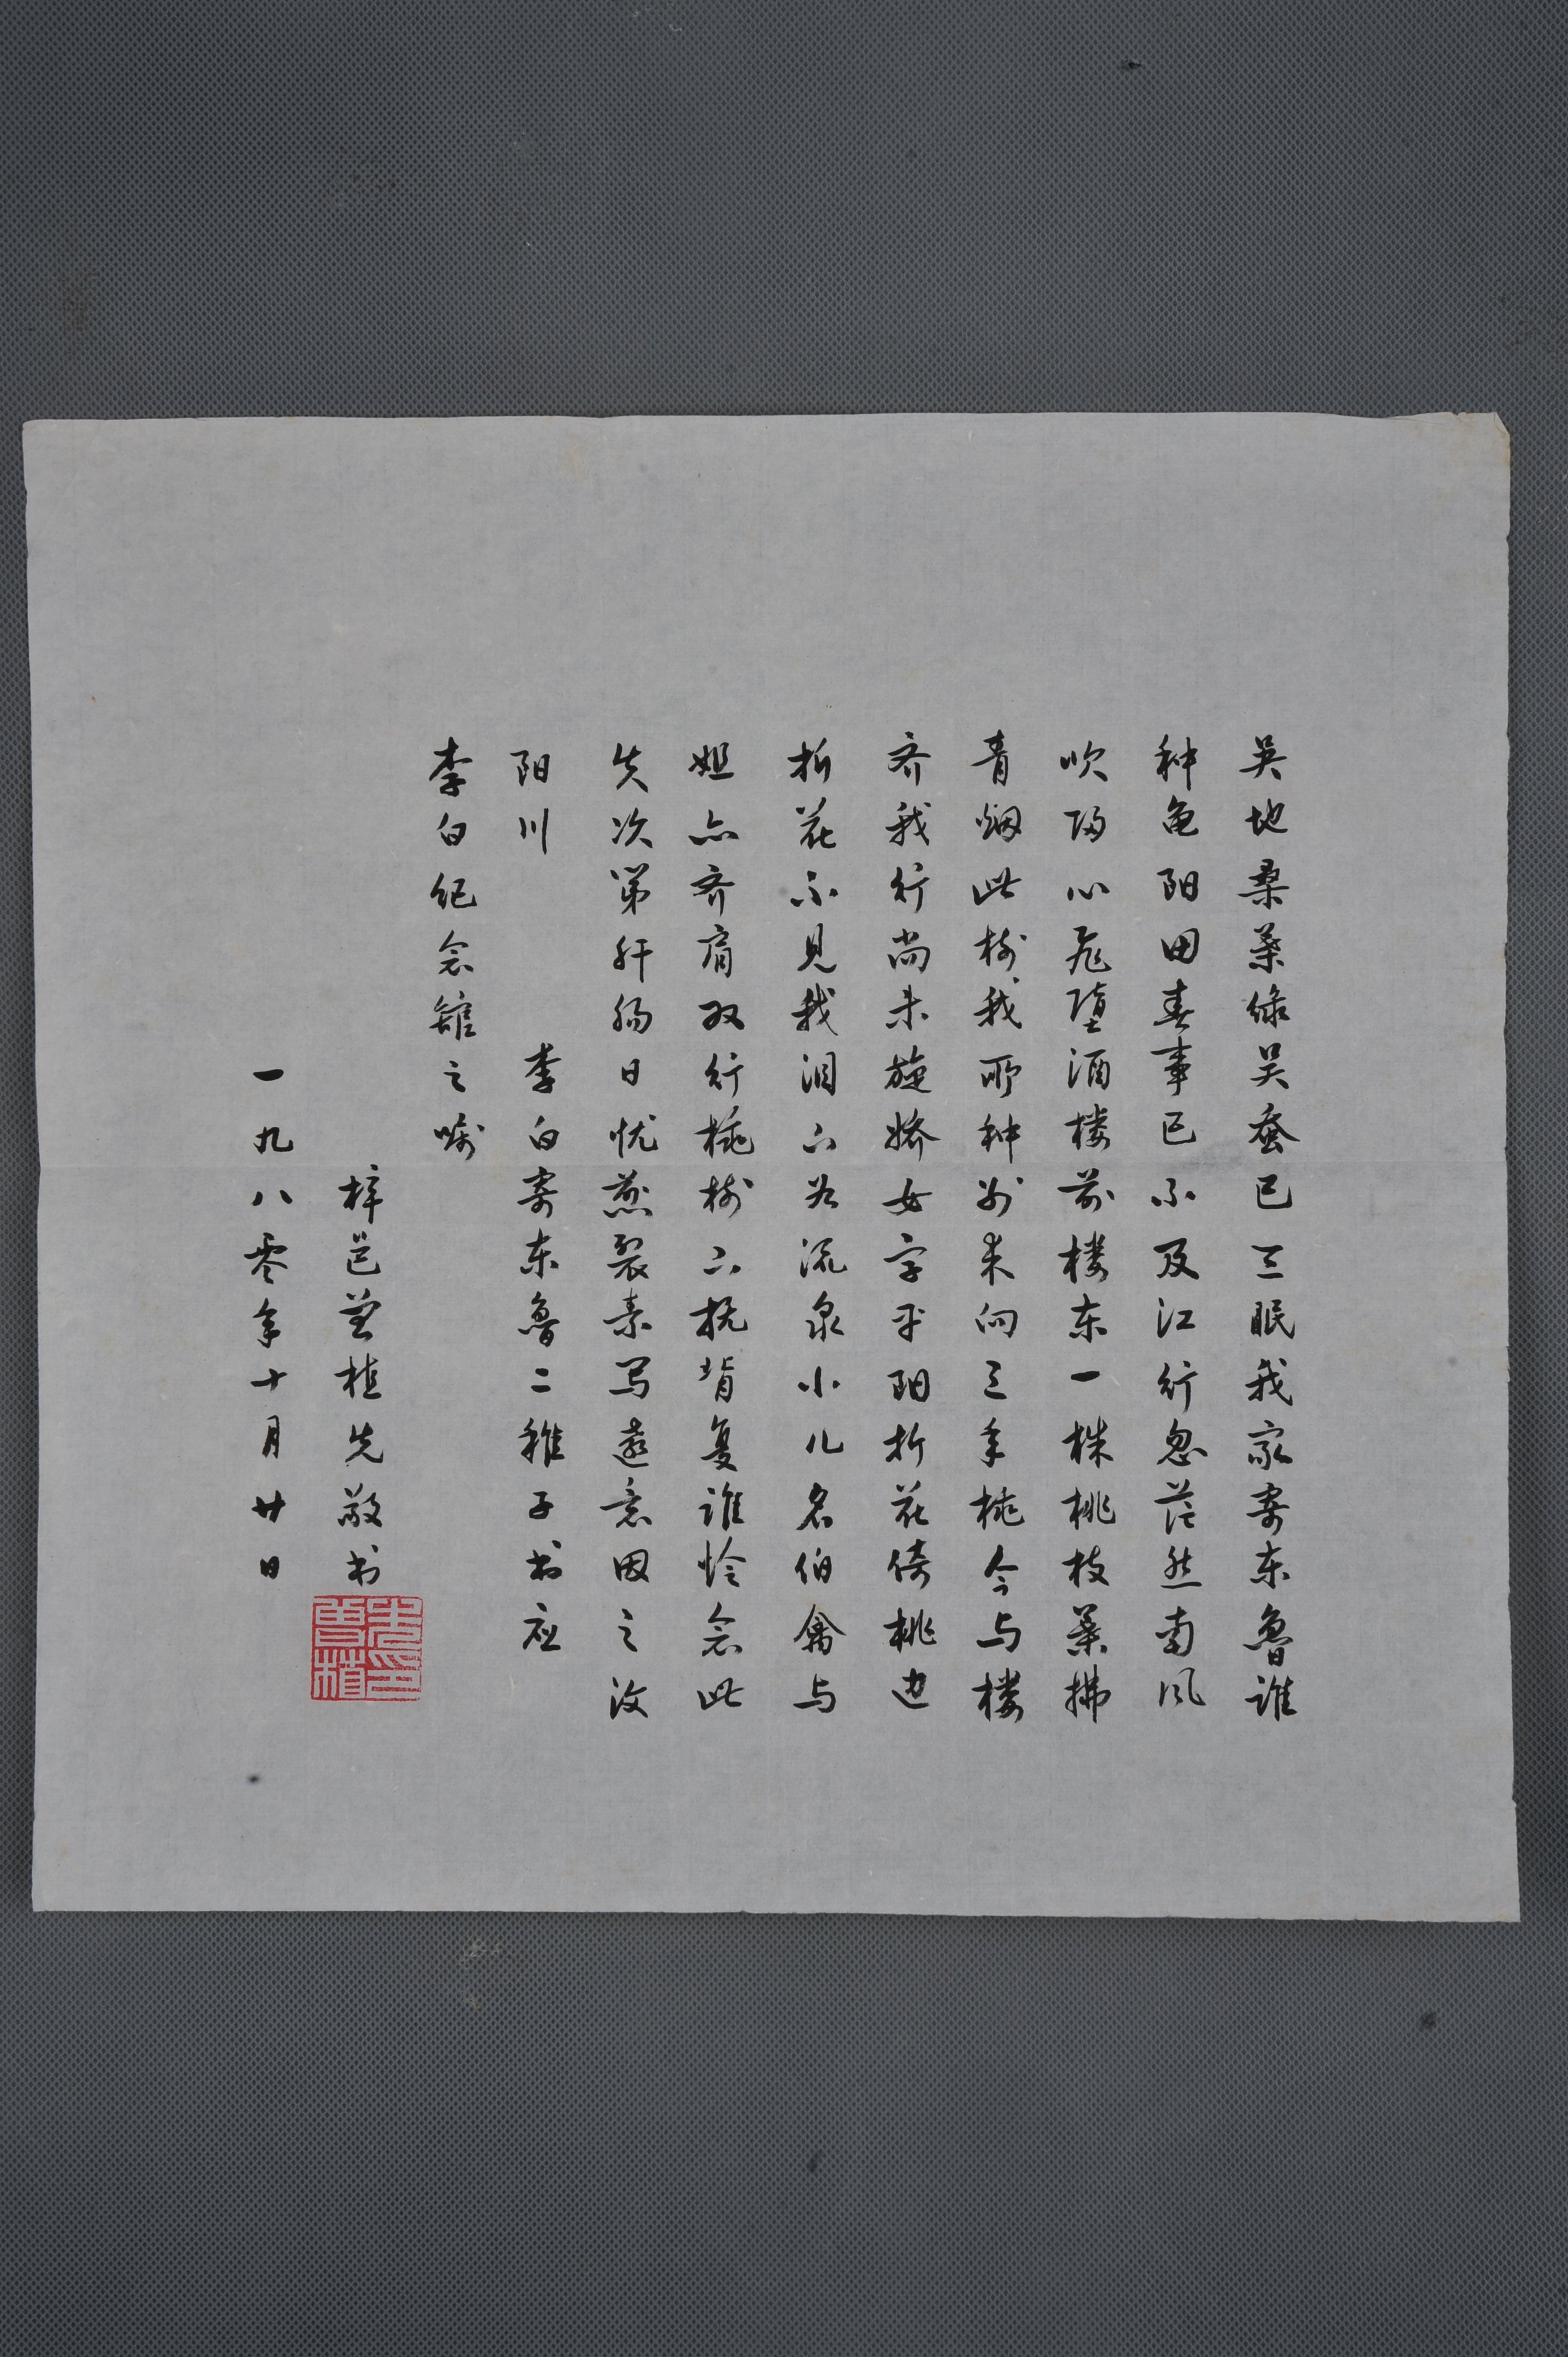 吴地桑葉绿吴蚕已三眠我家寄东鲁谁
种龟阳田春事已不及江行忽茫然南风
吹归心飛堕酒楼前楼东一株桃枝葉拂
青烟此树我所种别来向三年桃今与楼
齐我行尚未旋娇女字平阳折花倚桃边
折花不見我泪下如流泉小儿名伯禽与
姐亦齐肩双行桃树下抚背复谁怜念此
失次第肝肠日忧煎裂素写遠意因之汶
阳川
李白寄东鲁二稚子书应
李白纪念馆之嘱
梓邑曾植先敬书
一九八零年十月廿日